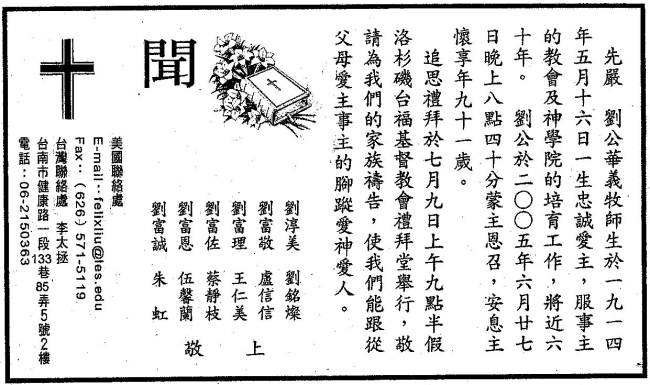 先嚴　劉公華義牧師生於一九一四
年五月十六日一生忠誠愛主，服事主
的教會及神學院的培育工作，將近六
十年。　劉公於二〇〇五年六月廿七
日晚上八點四十分蒙主恩召，安息主
懷享年九十一歲。
追思禮拜於七月九日上午九點半假
洛杉磯台福基督教會禮拜堂舉行，敬
請為我們的家族禱告，使我們能跟從
父母愛主事主的腳蹤愛神愛人。
聞
劉淳美　劉銘燦
劉富敬　盧信信
劉富理　王仁美
劉富佐　蔡靜枝
劉富恩　伍馨蘭
劉富誠　朱　虹
敬　上
美國聯絡處
E-mail：felixliu@les.edu
Fax：(626) 571-5119
台灣聯絡處　李太拯
台南市健康路一段133巷85弄5號2樓
電話：06-2150363